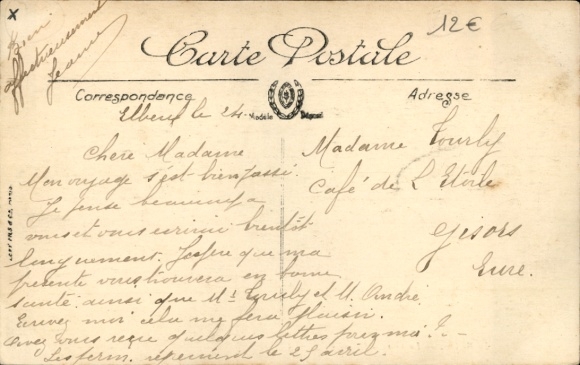 x
Bien
affectueusement
Jeanne
12€
Carte Postale
Correspondance
Modèle Déposé
Adresse
Elbeuf le 24
Chere Madame
Mon voyage s'est bien passé.
Je pense beaucoup a
vous et vous ecrirai bientôt
longuement. J'espere que ma
presente vous trouvera en bonne
santé ainsi que Mr Tourly et M. André.
Ecrivez moi cela me fera plaisir.
Avez vous reçu quelques lettres pour moi ? -
Les ferm. reprennent le 25 avril.
Madame Tourly
Café de L'Etoile
Gisors
Eure.